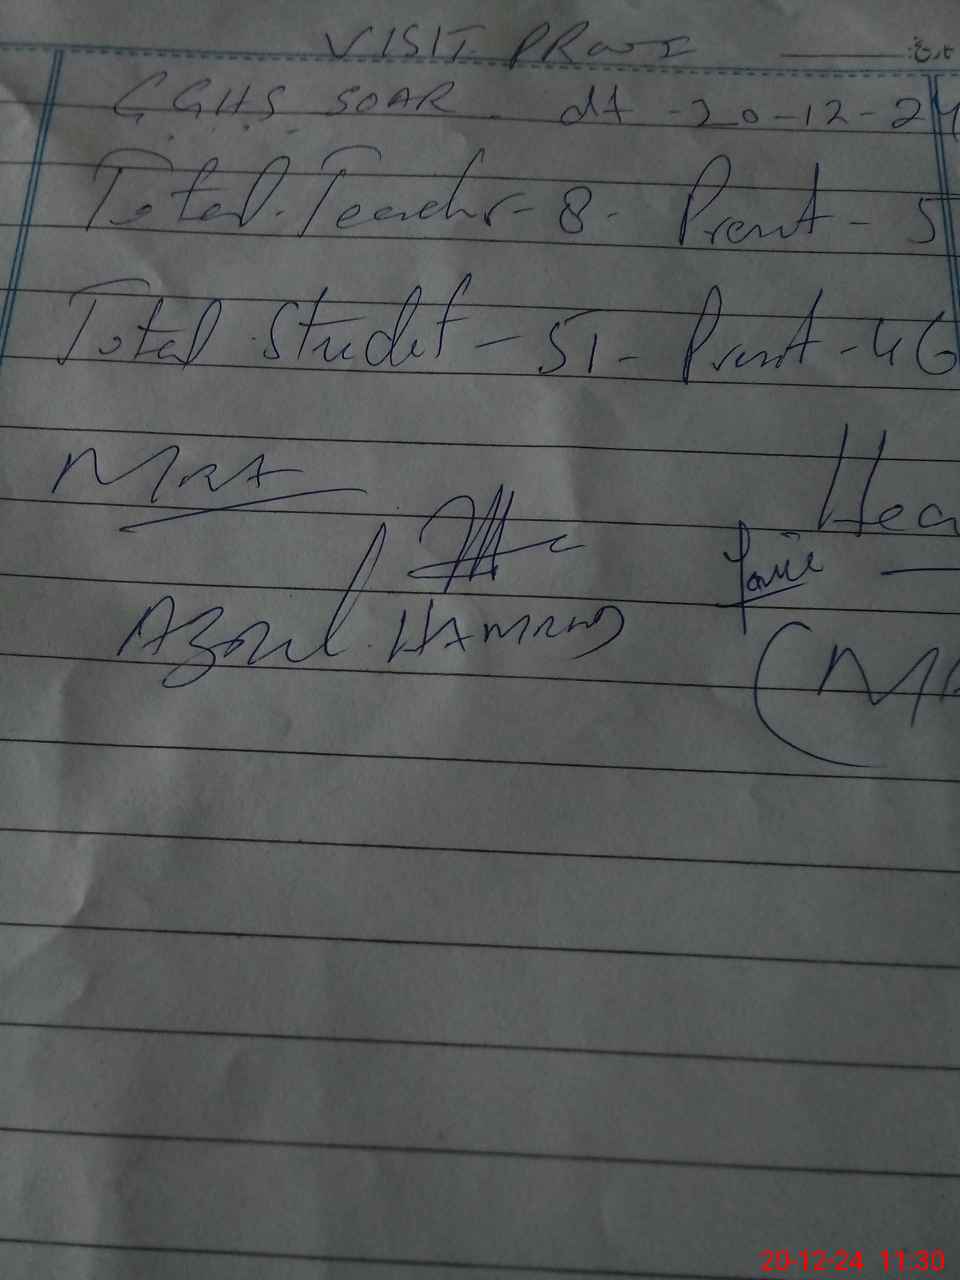 VISIT PROOF
GGHS SOAR. dt - 20-12-24
Total. Teacher - 8 - Present - 5
Total Student - 51 - Present - 46
MRA
Hea
AZMUL HAMMAD
(M
20-12-24 11:30